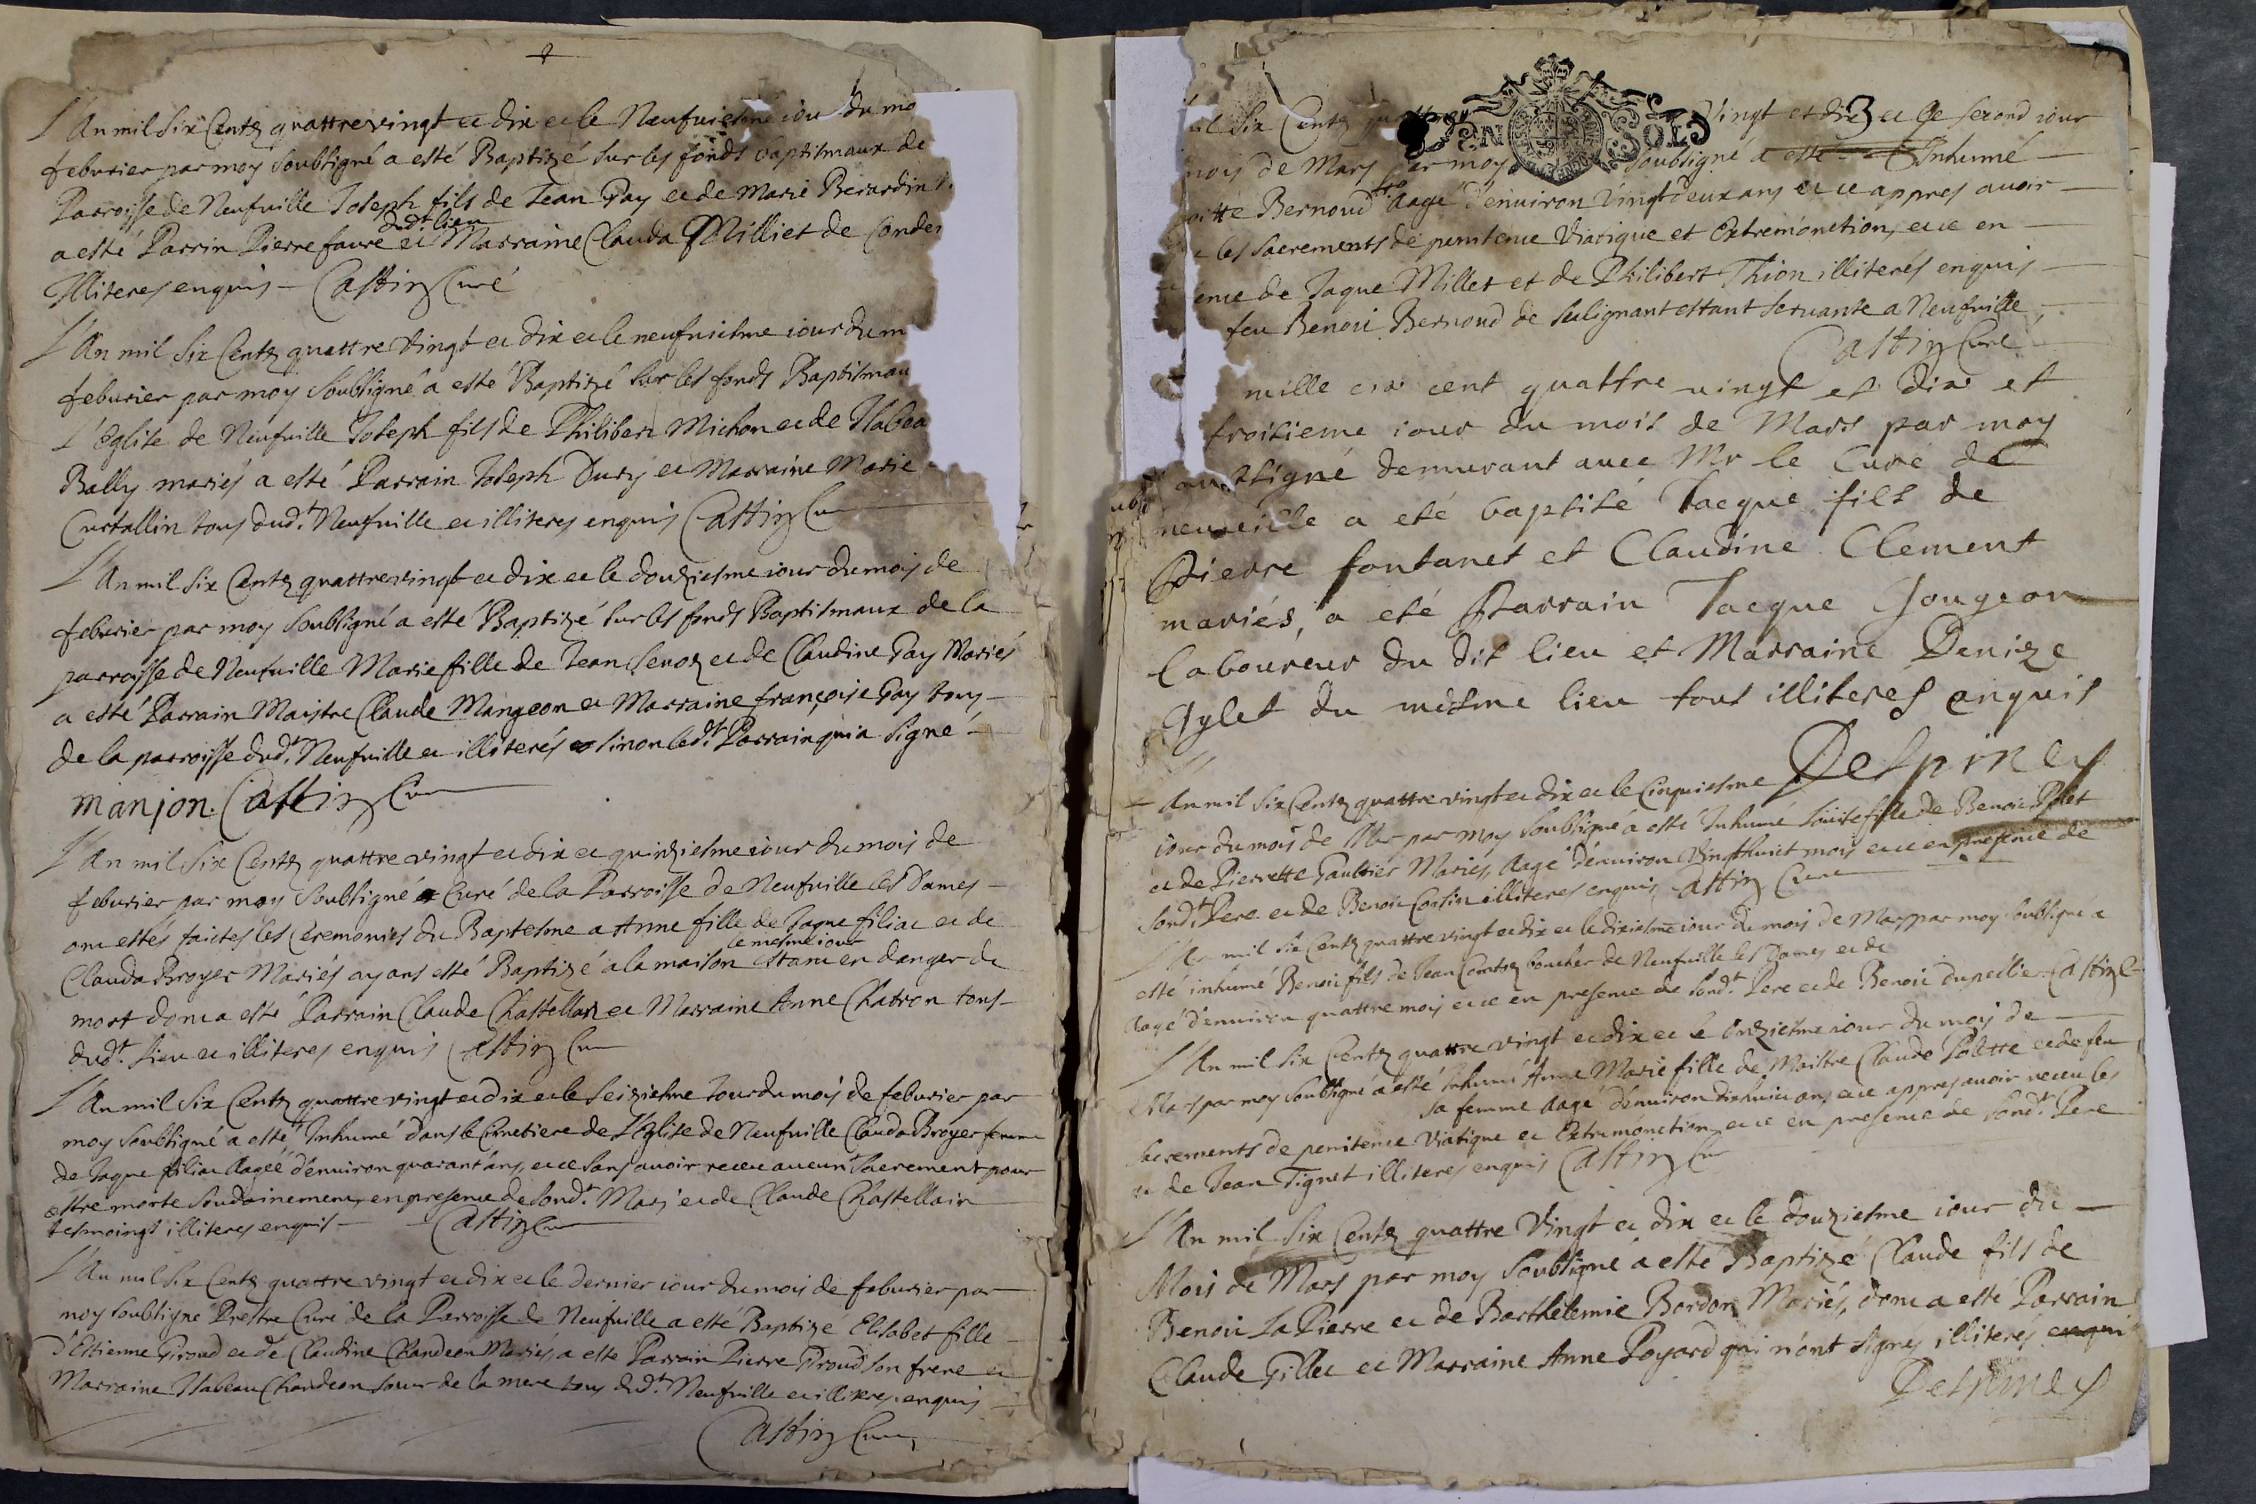 L'An mil Six Centz quattre vingt et dix et le Neufuiesme iour du mo
feburier par moy Soubsigné a esté Baptizé sur les fonds baptismaux de
Parroisse de Neufuille Joseph fils de Jean Gay et de Marie Berardin
dudt lieu
a esté Parrin Pierre faure et Marraine Clauda Milliet de Conde
Illiteres enquis – Castin Curé
L'An mil Six Centz quattre vingt et dix et le neufuiesme iour du m
feburier par moy Soubsigné a esté Baptizé sur les fonds Baptismau
L'Eglise de Neufuille Joseph fils de Philibert Michon et de Isabea
Bally mariés a esté Parrain Joseph Dury et Marraine Marie
Curtallin tous dudt. Neufuille et illiteres enquis Castin Cu
L'An mil Six Centz quattre vingt et dix et le douziesme iour du mois de
feburier par moy Soubsigné a esté Baptizé sur les fonds Baptismaux de la
parroisse de Neufuille Marie fille de Jean Senoz et de Claudine Gay Mariés
a esté Parrain Maistre Claude Mangeon et Marraine françoise Gay tous –
de la parroisse dudt. Neufuille et illiterés sinon ledt. Parrain qui a signé –
manjon. Castin Cu
L'An mil Six Centz quattre vingt et dix et quinziesme iour du mois de
feburier par moy Soubsigné Curé de la Parroisse de Neufuille les Dames –
ont estés faictes les Ceremonies du Baptesme a Anne fille de Jaque filiat et de
le mesme iour
Clauda Broyer Mariés ayant esté Baptizé a la maison estant en danger de
mort dont a esté Parrain Claude Chastellan et Marraine Anne Chatron tous
dudt. lieu et illiteres enquis Castin Cu
L'An mil Six Centz quattre vingt et dix et le Seiziesme Jour du mois de feburier par
moy Soubsigné a esté Inhumé dans le Cimetiere de L'Eglise de Neufuille Clauda Broyer femme
de Jaque filiat Aageé d'enuiron quarant'ans, et ce sans auoir receu aucun Sacrement pour
estre morte Soudainement, en presence de Sondt. Mary et de Claude Chastellain
tesmoingt illiteres enquis – Castin Cu
L'An mil Six Centz quattre vingt et dix et le dernier iour du mois de feburier par
moy Soubsigné Prestre Curé de la Parroisse de Neufuille a esté Baptizé Elisabet fille
D'Estienne Giroud et de Claudine Chandeon Mariés a esté Parrain Pierre Giroud son frere et
Marraine Isabeau Chandeon soeur de la mere tous dudt. Neufuille et illiteres enquis
Castin Cure
il Six Centz quattre Vingt et dix et le second iour
DEN SOLS
mois de Mars par moy Soubsigné a esté Inhumé –
oitte Bernoud Aagé d'enuiron Vingt deux ans et ce appres auoir –
les sacrements de penitence Viatique et Extremonction, et ce en –
ence de Jaque Millet et de Philibert Thion illiterés enquis –
feu Benoit Bernoud de Sulignant estant seruante a Neufuille
Castin Curé
mille six cent quattre vingt et dix et
troisieme iour du mois de Mars par moy
soussigné demurant auec Mr le Curé de
neuuille a eté baptisé Jacque fils de
Pierre fontanet et Claudine Clement
mariés, a eté Parrain Jacque Gougeon
laboureur du dit lieu et Marraine Denize
Gylet du mesme lieu tous illiteres enquis
Despines
L'An mil Six Centz quattre vingt et dix et le Cinquiesme
iour du mois de Mar par moy Soubsigné a esté Inhumé Louise fille de Benoit
et de Pierrette Gaultier Mariés, Aagé d'enuiron Vingthuict mois et ce en presence de
Sondt. Pere et de Benoit Corsin illiteres enquis, Castin Cure
L'An mil Six Centz quattre vingt et dix et le dixiesme iour du mois de Mars par moy Soubsigné a
esté inhumé Benoit fils de Jean boucher de Neufuille les Dames et de
Aagé d'enuiron quattre mois et ce en presence de Sondt. Pere et de Benoit Dupellier Castin C
L'An mil Six Centz quattre vingt et dix et le Onziesme iour du mois de
Mars par moy Soubsigné a esté Inhumé Anne Marie fille de Maistre Claude Polette et de feu
sa femme Aagé d'enuiron dixhuict ans, et ce appres auoir receu les
Sacrements de penitence Viatique et Extremonction et ce en presence de Sondt. Pere
et de Jean Tignet illiteres enquis Castin Cu
L'An mil Six Centz quattre Vingt et dix et le douziesme iour du –
Mois de Mars par moy Soubsigné a esté Baptizé Claude fils de
Benoit La Pierre et de Barthelemie Bordon Mariés, dont a esté Parrain
Claude Gillet et Marraine Anne Poyard qui n'ont signes illiterés enqui
Despines